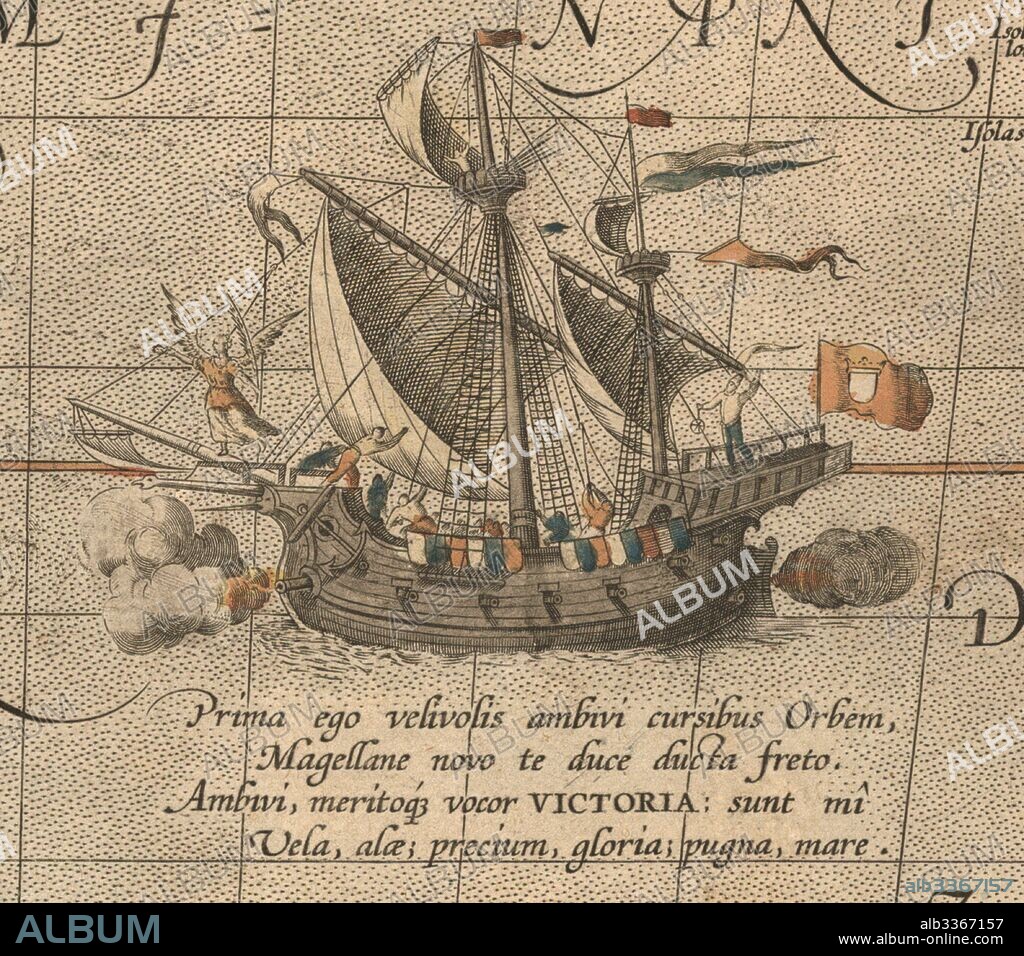 Isolas
Prima ego velivolis ambivi cursibus Orbem,
Magellane novo te duce ducta freto.
Ambivi, meritoq3 vocor VICTORIA: sunt mî
Vela, alæ; precium, gloria; pugna, mare.
D
alb3367157
ALBUM
alb3367157
www.album-online.com